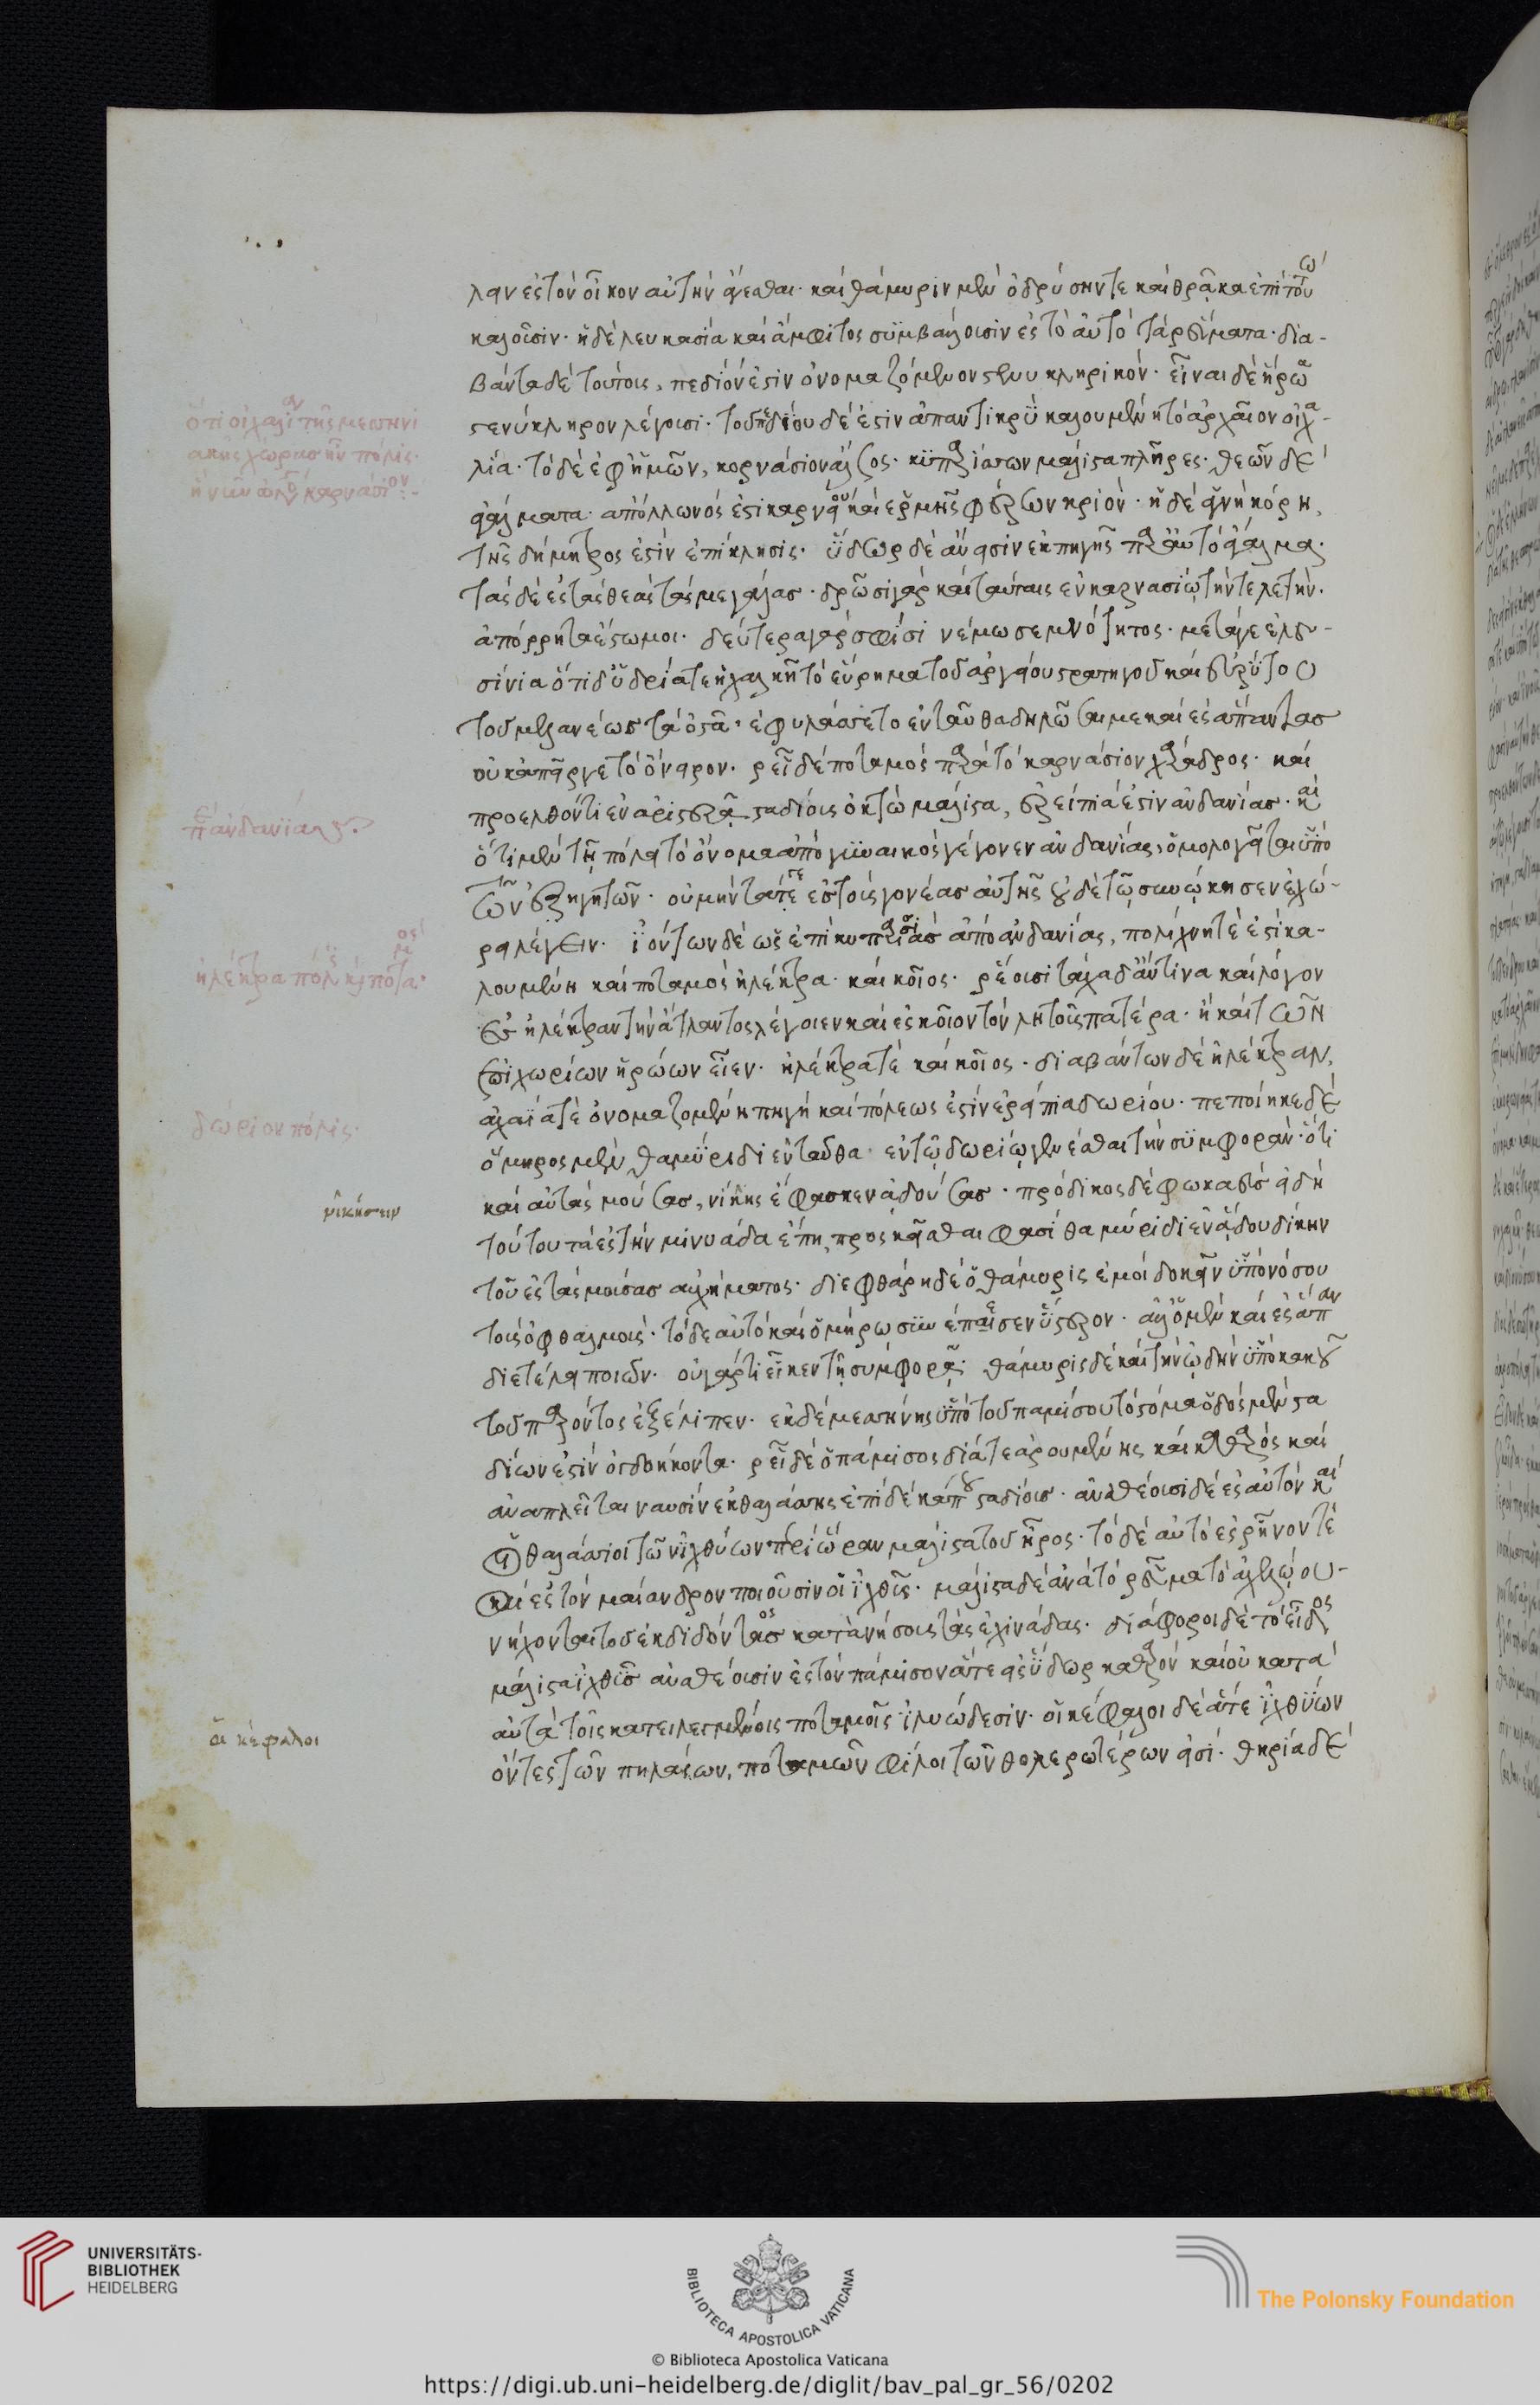 λαν ἐς τὸν οἶκον αὐτὴν ἄγεσθαι· καὶ θάμυριν μὲν ὀδρύσην τε καὶ θρᾷκα ἐπὶ τούτω
καλοῦσιν· ἡ δὲ λευκασία καὶ ἄμφιτος συμβάλλουσιν ἐς τὸ αὐτὸ τὰ ῥεύματα· δια-
βάντα δὲ τούτοις, πεδίον ἐστὶν ὀνομαζόμενον στενυκληρικόν· εἶναι δὲ ἥρωα
στενύκληρον λέγουσι· τοῦ πεδίου δέ ἐστιν ἀπαντικρὺ καλουμένη τὸ ἀρχαῖον οἰχα-
ὅτι οἰχαλία τῆς μεσσηνι
ακῆς χώρας ἦν πόλις·
ἡ νῦν
καρνάσιον
λία· τὸ δὲ ἐφ' ἡμῶν, κορνάσιον ἄλσος· κυπαρίσσων μάλιστα πλῆρες· θεῶν δὲ
ἀγάλματα ἀπόλλωνός ἐστι καρνείου καὶ ἑρμῆς φέρων κριόν· ἡ δὲ ἁγνὴ κόρη,
τῆς δήμητρος ἐστὶν ἐπίκλησις· ὕδωρ δὲ ἄνεισιν ἐκ πηγῆς παρ' αὐτὸ ἄγαλμα·
τὰς δὲ ἐς τὰς θεὰς τὰς μεγάλας· δρῶσι γὰρ καὶ ταύταις ἐν καρνασίῳ τὴν τελετήν·
ἀπόρρητα ἔστω μοι· δεύτερα γάρ σφισι νέμω σεμνότητος· μετά γε ἐλευ-
σίνια ὅτι δ' ὑδρία τε ἡ χαλκῆ τὸ εὕρημα τοῦ ἀργείου στρατηγοῦ καὶ εὐρύτου
τοῦ μελανέως τὰ ὀστᾶ· ἐφυλάσσετο ἐνταῦθα δηλῶσαι με καὶ ἐς ἅπαντας
οὐκ ἀπεῖργε τὸ ὄνειρον· ῥεῖ δὲ ποταμὸς παρὰ τὸ καρνάσιον χάραδρος· καὶ
προελθόντι ἐν ἀριστερᾷ σταδίοις ὀκτὼ μάλιστα, ἐρείπιά ἐστιν ἀνδανίας· καὶ
π ανδανίας
ὅτι μὲν τῇ πόλει τὸ ὄνομα ἀπὸ γυναικὸς γέγονεν ἀνδανίας, ὁμολογεῖται ὑπὸ
τῶν ἐξηγητῶν· οὐ μὴν τά γε ἐς τοὺς γονέας αὐτῆς οὐδὲ τῷ συνῴκησεν ἔχω-
ρα λέγειν· ἰόντων δὲ ὡς ἐπὶ κυπαρισσιὰς ἀπὸ ἀνδανίας, πολίχνη τέ ἐστι κα-
λουμένη καὶ ποταμὸς ἠλέκτρα καὶ κοῖος· ῥέουσι τάχα δ' ἄν τινα καὶ λόγον
ἠλέκτρα πόλις καὶ ποταμός·
ἐς ἠλέκτραν τὴν ἄτλαντος λέγοιεν καὶ ἐς κοῖον τὸν λητοῦς πατέρα· ἢ καὶ τῶν
ἐπιχωρίων ἡρώων εἶεν· ἠλέκτρα τὲ καὶ κοῖος· διαβάντων δὲ ἠλέκτραν,
ἀχαΐα τὲ ὀνομαζομένη πηγὴ καὶ πόλεως ἐστὶν ἐρείπια δωρίου· πεποίηκε δὲ
δώριον πόλις·
ὅμηρος μὲν θαμύριδι ἐνταῦθα ἐν τῷ δωρίῳ γενέσθαι τὴν συμφοράν· ὅτι
καὶ αὐτὰς μούσας, νίκης ἔφασκεν ᾀδούσας· πρόδικος δὲ φωκαεὺς εἰ δὴ
νικήσειν
τούτου τὰ ἐς τὴν μινυάδα ἔπη, προσκεῖσθαι φασὶ θαμύριδι ἐν ᾅδου δίκην
τοῦ ἐς τὰς μούσας αὐχήματος· διεφθάρη δὲ ὁ θάμυρις ἐμοὶ δοκεῖν ὑπὸ νόσου
τοὺς ὀφθαλμούς· τὸ δὲ αὐτὸ καὶ ὁμήρω συνέπεσεν ὕστερον· ἀλλ' ὁ μὲν καὶ ἐς ἅπαν
διετέλει ποιῶν· οὐ γάρ τι εἶκεν τῇ συμφορᾷ· θάμυρις δὲ καὶ τὴν ᾠδὴν ὑπὸ κακοῦ
τοῦ παρόντος ἐξέλιπεν· ἐκ δὲ μεσσήνης ὑπὸ τοῦ παμίσου τὸ στόμα ὁδὸς μὲν στα
δίων ἐστὶν ὀγδοήκοντα· ῥεῖ δὲ ὁ πάμισος διά τε ἀρουμένης καὶ καθαρὸς καὶ
ἀναπλεῖται ναυσὶν ἐκ θαλάσσης ἐπὶ δέκα που σταδίους· ἀναθέουσι δὲ ἐς αὐτὸν καὶ
οἱ θαλάσσιοι τῶν ἰχθύων περὶ ὥραν μάλιστα τοῦ ἦρος· τὸ δὲ αὐτὸ ἐς ῥῆνον τὲ
καὶ ἐς τὸν μαίανδρον ποιοῦσιν οἱ ἰχθῦς· μάλιστα δὲ ἀνὰ τὸ ῥεῦμα τὸ ἀχελῴου-
νήχονται τοῦ ἐκδιδόντος κατὰ νήσους τὰς ἐχινάδας· διάφοροι δὲ τὸ εἶδος
μάλιστα ἰχθῦς ἀναθέουσιν ἐς τὸν πάμισον ἅτε ἐς ὕδωρ καθαρὸν καὶ οὐ κατὰ
αὐτὰ τοῖς κατειλεγμένοις ποταμοῖς ἰλυώδεσιν· οἱ κέφαλοι δὲ ἅτε ἰχθύων
οἱ κέφαλοι
ὄντες τῶν πηλαίων, ποταμῶν φίλοι τῶν θολερωτέρων εἰσί· θηρία δὲ
UNIVERSITÄTS-
BIBLIOTHEK
HEIDELBERG
BIBLIOTECA APOSTOLICA VATICANA
The Polonsky Foundation
© Biblioteca Apostolica Vaticana
https://digi.ub.uni-heidelberg.de/diglit/bav_pal_gr_56/0202